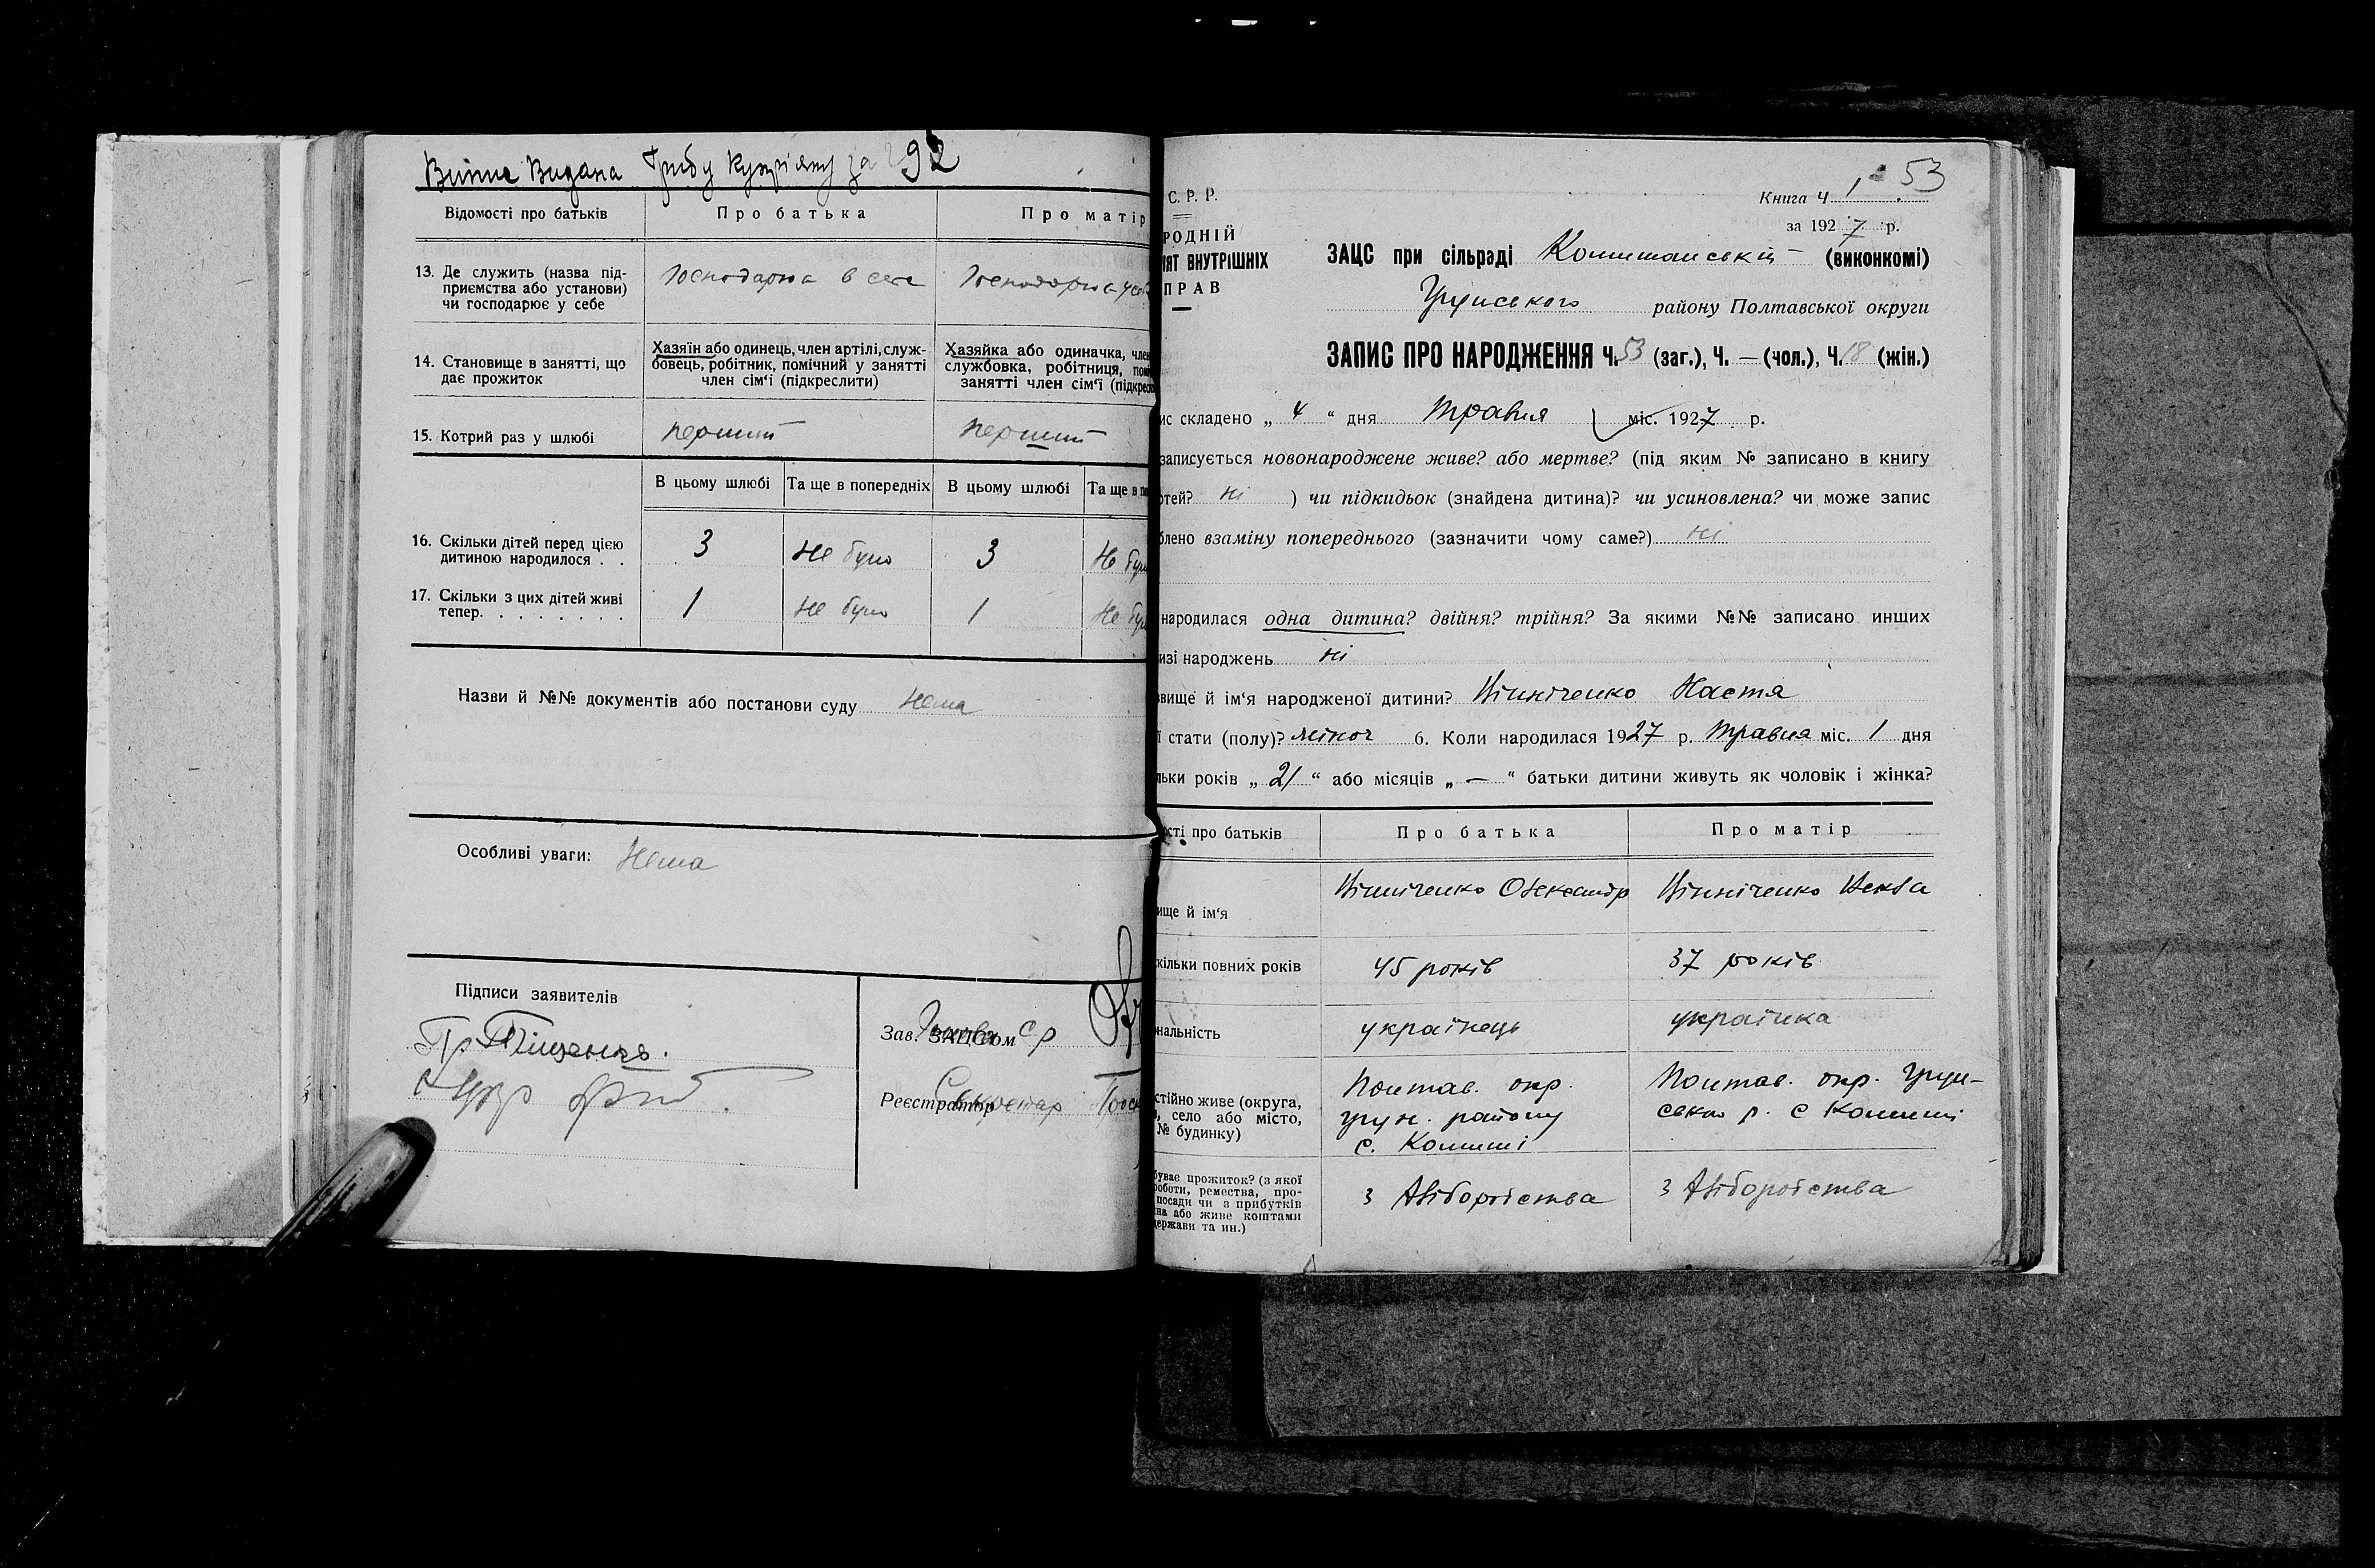 Випис Видана Грибу Купріяну за № 92
Відомості про батьків
Про батька
Про матір
13. Де служить (назва під-
приємства або установи)
чи господарює у себе
Господарює в себе
Господарює у себе
14. Становище в занятті, що
дає прожиток
Хазяїн або одинець, член артілі, служ-
бовець, робітник, помічний у занятті
член сім'ї (підкреслити)
Хазяйка або одиначка, член
службовка, робітниця, пом
занятті член сім'ї (підкресл
15. Котрий раз у шлюбі
перший
перший
В цьому шлюбі
Та ще в попередніх
В цьому шлюбі
Та ще в по
16. Скільки дітей перед цією
дитиною народилося . .
3
Не було
3
Не бул
17. Скільки з цих дітей живі
тепер. . . . . . . .
1
Не було
1
Не бул
Назви й №№ документів або постанови суду Нема
Особливі уваги: Нема
Підписи заявителів
Гр Тищенко.
Зав. ЗАЦС'ом Голова с р
Реєстратор Секретар
С. Р. Р.
РОДНІЙ
ІЯТ ВНУТРІШНІХ
ПРАВ
53
Книга Ч 1
за 1927 р.
ЗАЦС при сільраді (виконкомі)
Грунського району Полтавської округи
ЗАПИС ПРО НАРОДЖЕННЯ Ч. 53 (заг.), Ч. — (чол.), Ч. 18 (жін.)
ис складено „ 4 “ дня травня міс. 1927 р.
записується новонароджене живе? або мертве? (під яким № записано в книгу
ртей? ні ) чи підкидьок (знайдена дитина)? чи усиновлена? чи може запис
блено взаміну попереднього (зазначити чому саме?) ні
народилася одна дитина? двійня? трійня? За якими №№ записано инших
изі народжень ні
звище й ім'я народженої дитини? Вінніченко Настя
ї стати (полу)? жіноч 6. Коли народилася 1927 р. травня міс. 1 дня
льки років „ 21 “ або місяців „ — “ батьки дитини живуть як чоловік і жінка?
ості про батьків
Про батька
Про матір
вище й ім'я
Вінніченко Олександр
Вінніченко Векла
кільки повних років
45 років
37 років
нальність
українець
українка
стійно живе (округа,
н, село або місто,
№ будинку)
Полтав. окр.
грун. району
Полтав. окр. Грун-
буває прожиток? (з якої
роботи, ремества, про-
посади чи з прибутків
на або живе коштами
держави та ин.)
з хліборобства
з хліборобства